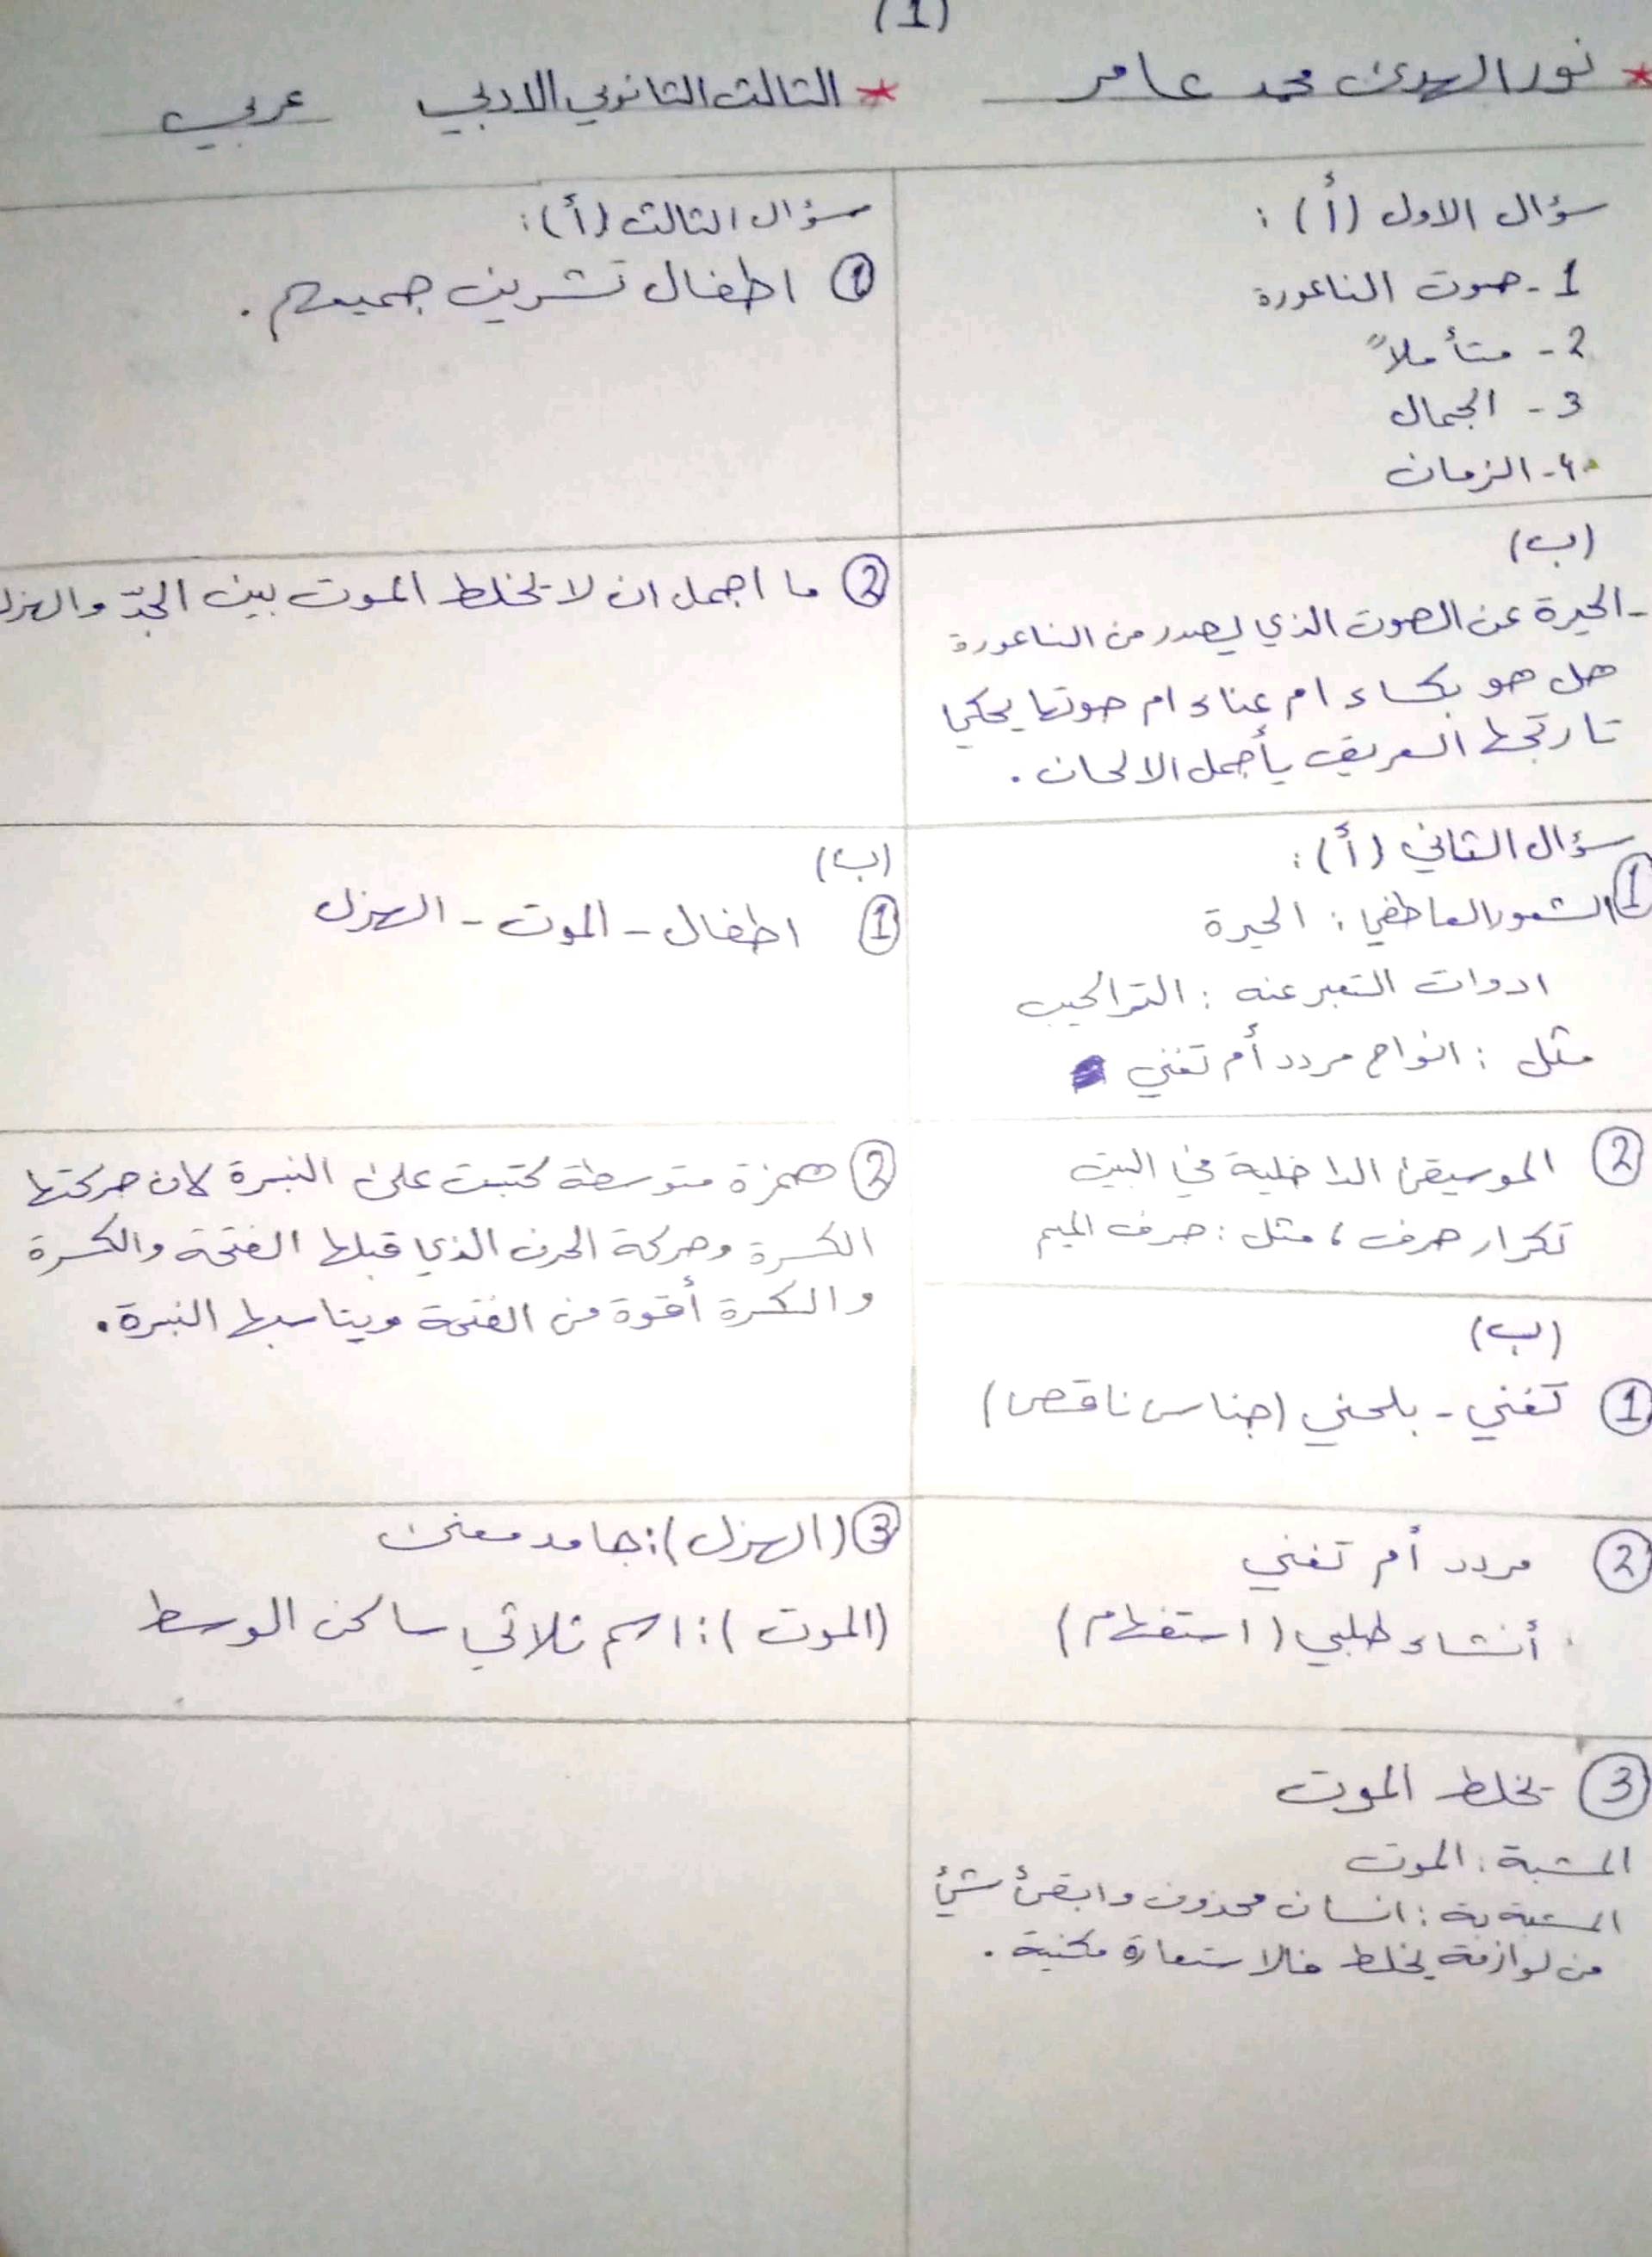 (1)
* نور الهدى محمد عامر * الثالث الثانوي الادبي عربي
سؤال الاول (أ) :
1 - صوت الناعورة
2 - متأملاً
3 - الجمال
4 - الزمان
(ب)
- الحيرة عن الصوت الذي يصدر من الناعورة
هل هو بكاء ام عناء ام صوتها يحكي
تاريخها العريق بأجمل الالحان .
سؤال الثاني (أ) :
1 الشعور العاطفي : الحيرة
ادوات التعبر عنه : التراكيب
مثل : انواح مردد أم تغني
2 الموسيقى الداخلية في البيت
تكرار حرف ، مثل : حرف الميم
(ب)
1 تغني - بلحني (جناس ناقص)
2 مردد أم تغني
أنشاء طلبي (استفهام)
3 يخلط الموت
المشبة : الموت
المشبة بة : انسان محذوف وابقئ شئ
من لوازمة يخلط فالاستعارة مكنية .
سؤال الثالث (أ) :
1 اطفال تشرين جميعهم .
2 ما اجمل ان لا يخلط الموت بين الجدّ والهزل
(ب)
1 اطفال - الموت - الهزل
2 همزة متوسطة كتبت على النبرة لان حركتها
الكسرة وحركة الحرف الذي قبلها الفتحة والكسرة
والكسرة أقوة من الفتحة ويناسبها النبرة .
3 (الهزل) : جامد معنى
(الموت) : اسم ثلاثي ساكن الوسط